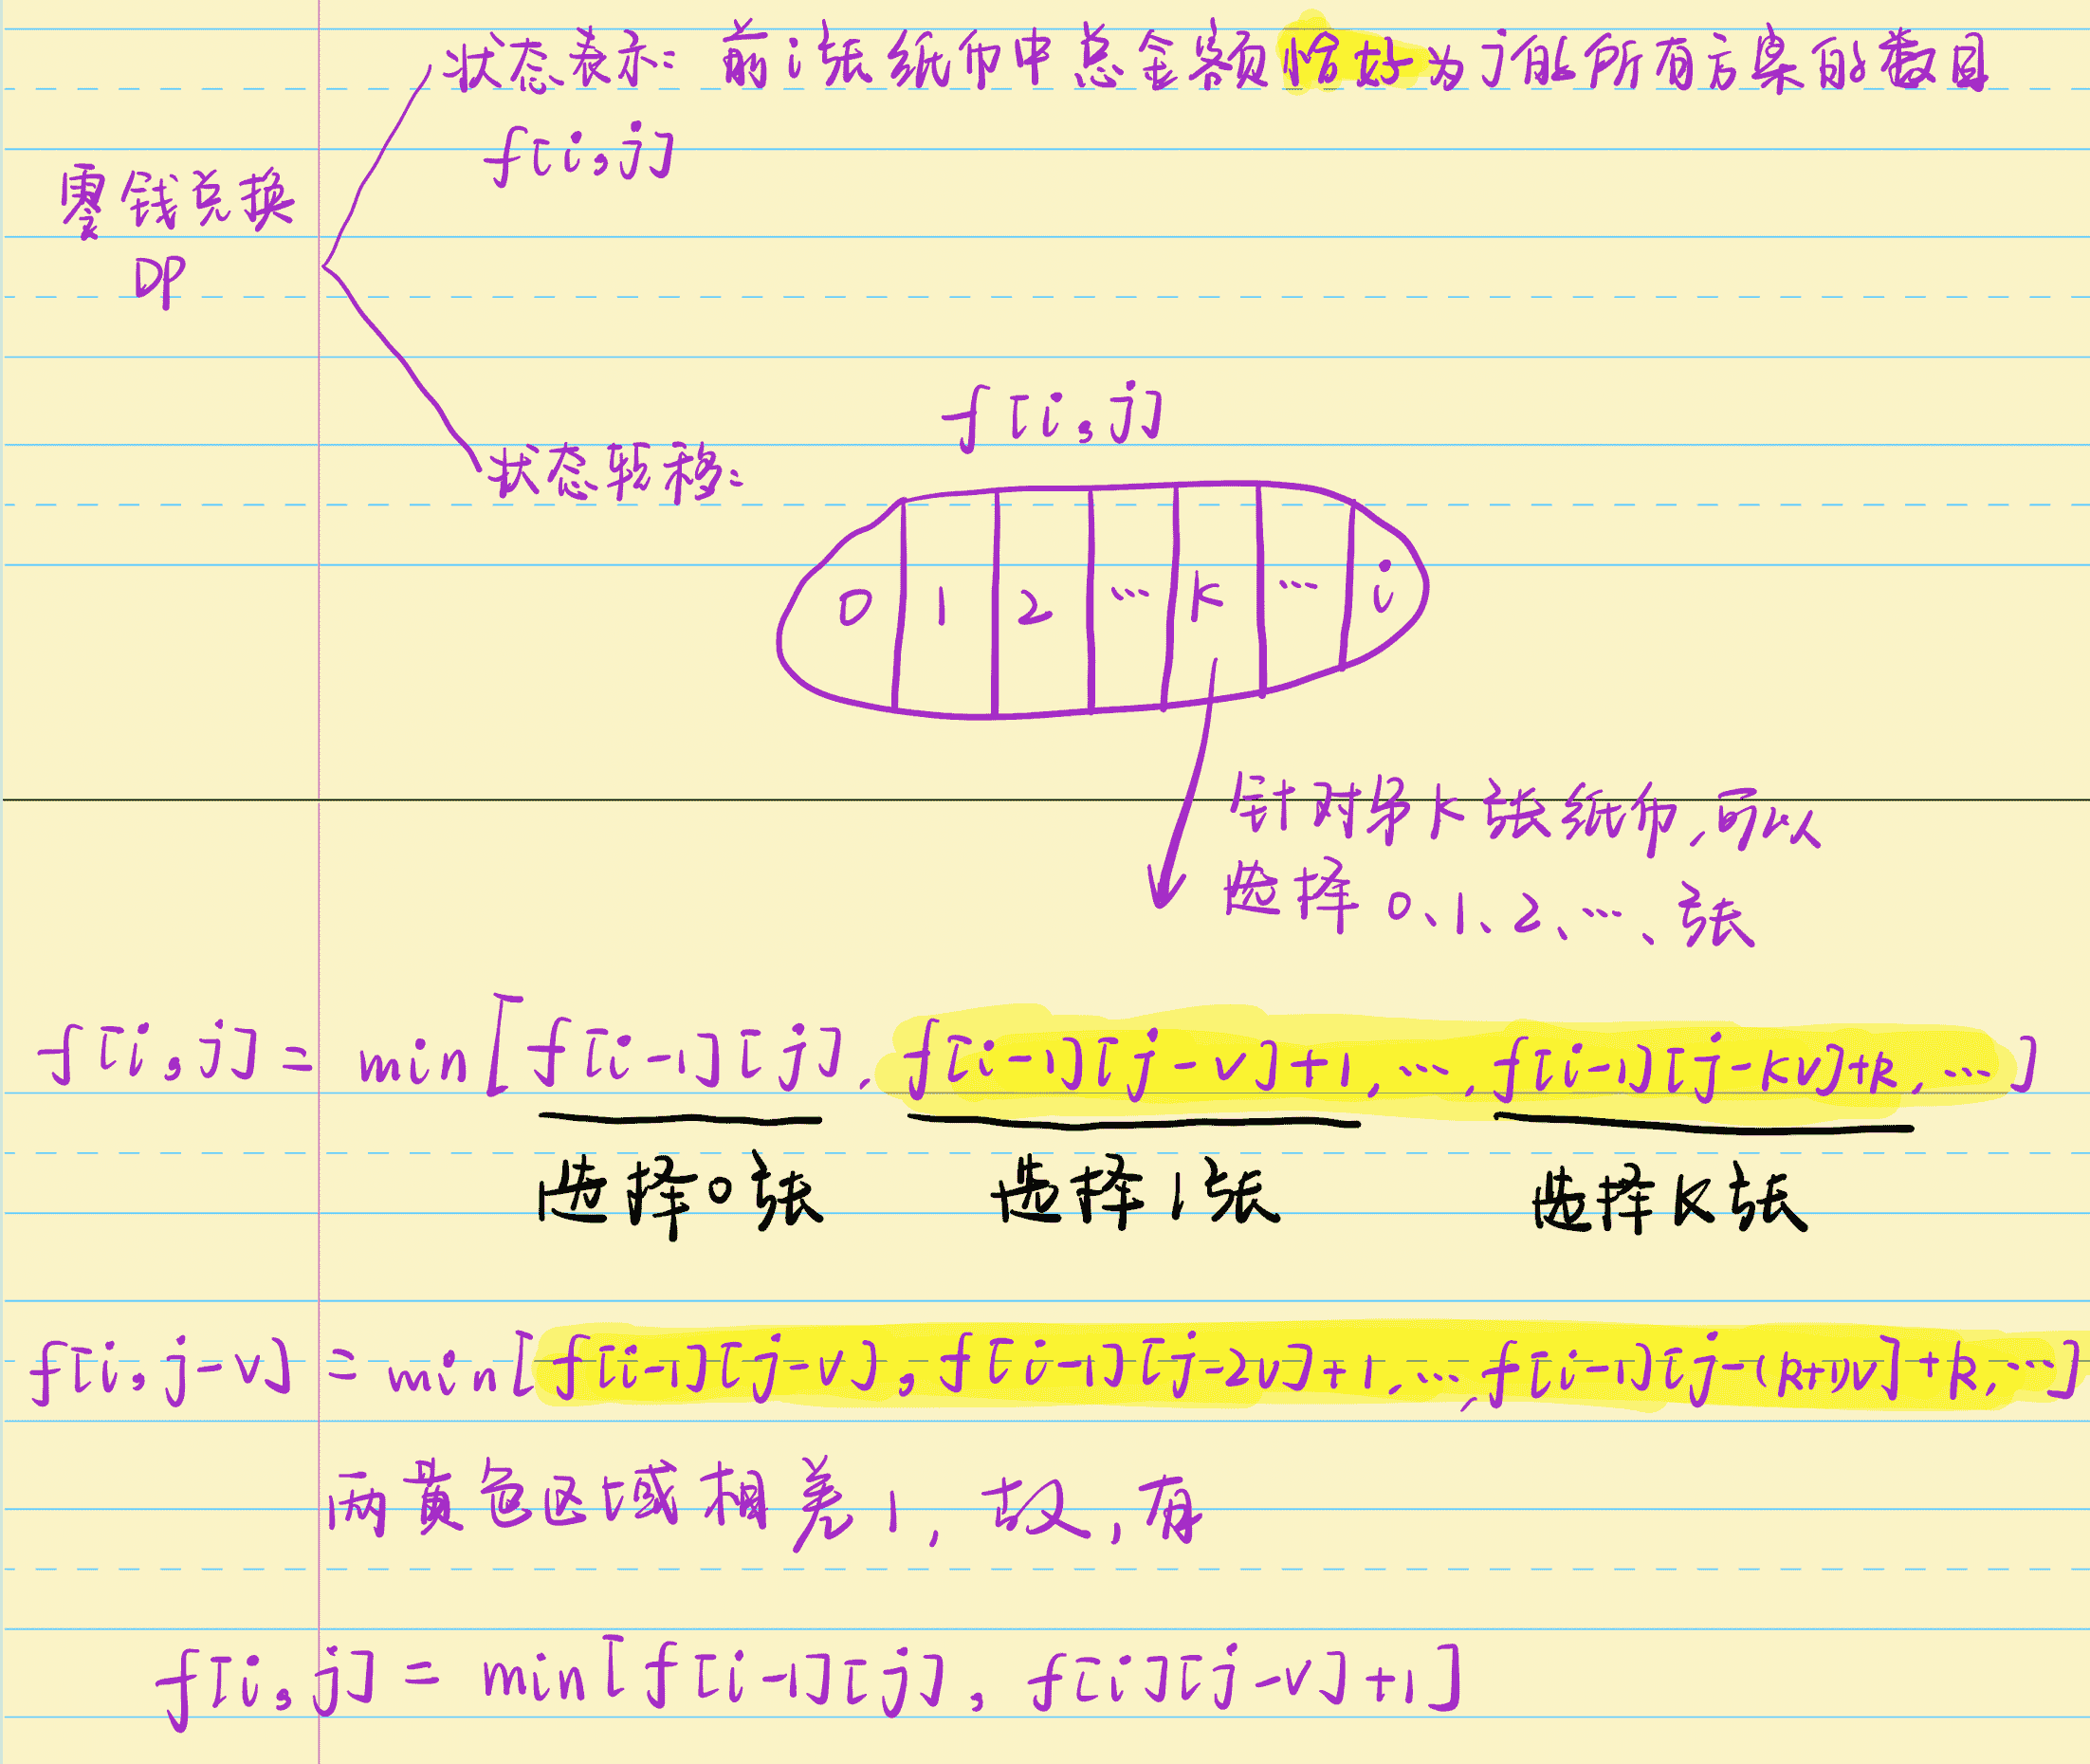 状态表示：前i张纸币中总金额恰好为j的所有方案的数目
f[i,j]
零钱兑换
DP
f[i,j]
状态转移：
0 1 2 … k … i
针对第k张纸币,可以
选择0、1、2、…、张
f[i,j] = min[f[i-1][j], f[i-1][j-v]+1, …, f[i-1][j-kv]+k, …]
选择0张 选择1张 选择k张
f[i,j-v] = min[f[i-1][j-v], f[i-1][j-2v]+1, …, f[i-1][j-(k+1)v]+k, …]
两黄色区域相差1, 故, 有
f[i,j] = min[f[i-1][j], f[i][j-v]+1]